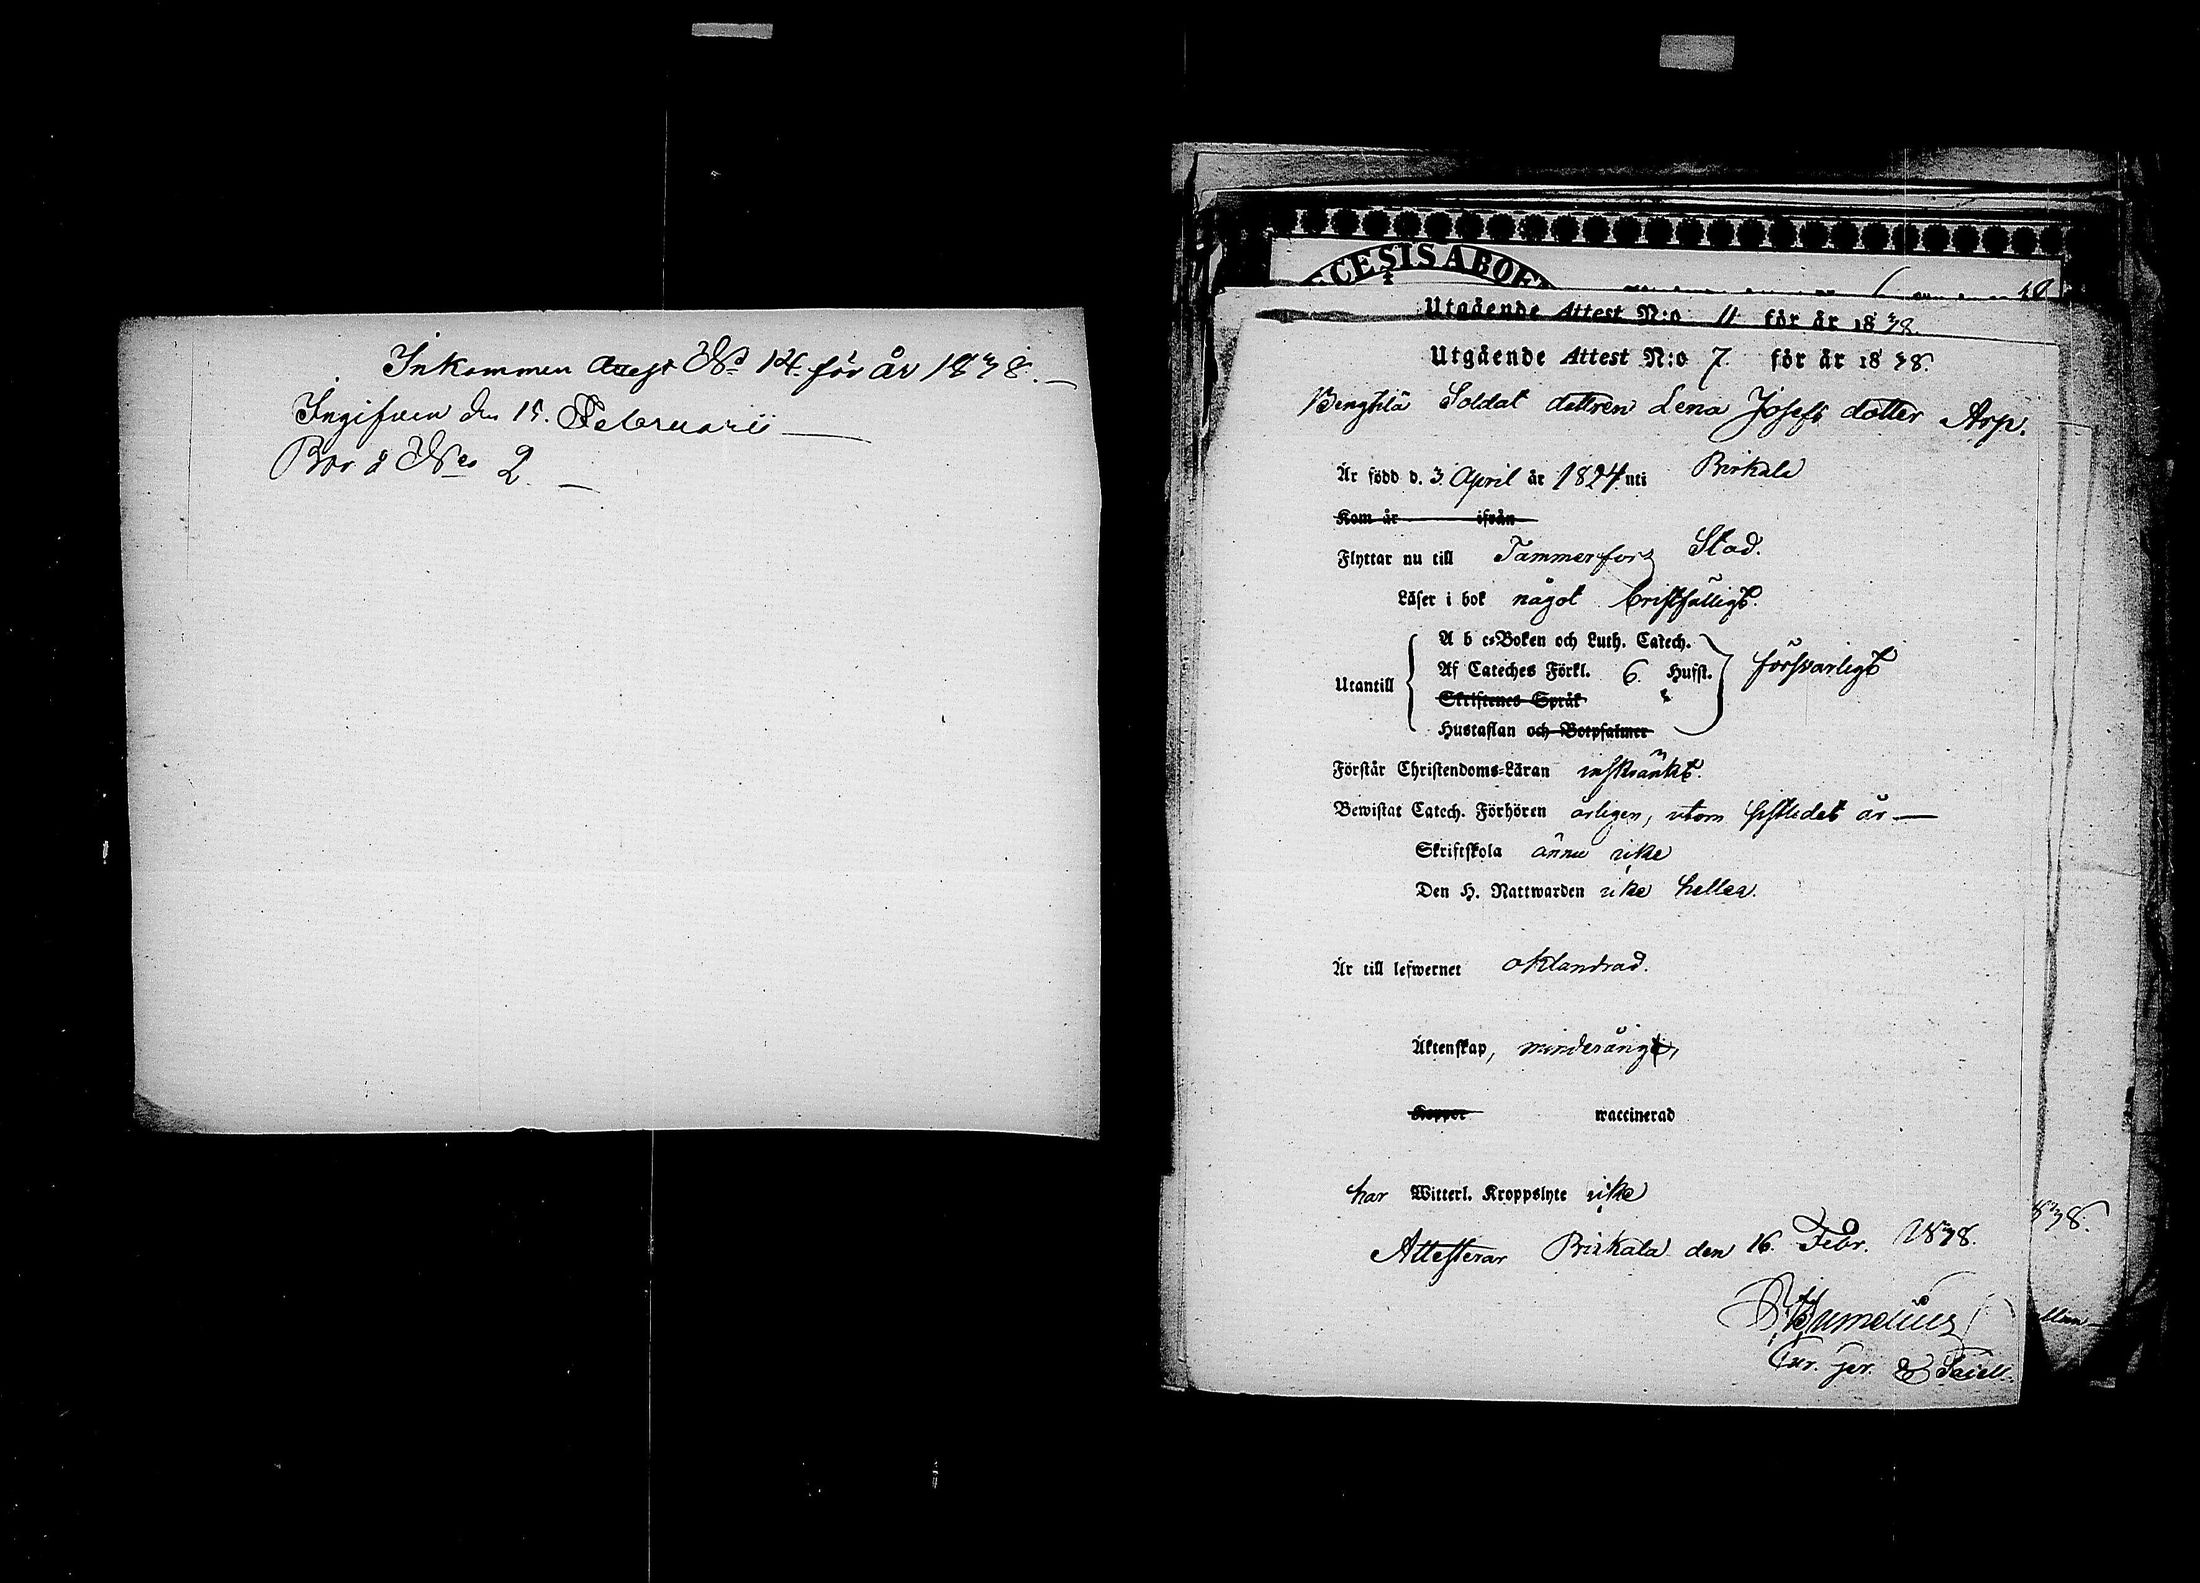 Inkommen Attest No 14 för år 1838.
Ingifven den 15. Februarii
Bor å No 2.
ECESIS ABOE
Utgående Attest N:o 11 för år 1838.
Utgående Attest N:o 7 för år 1838.
Soldat dottren Lena Josefs dotter Asp.
Är född d. 3 April år 1824 uti Birkala
Kom år ifrån
Flyttar nu till Tammerfors Stad.
Läser i bok något bristfälligt.
A b c-Boken och Luth. Catech.
Utantill Af Cateches Förkl. 6. Hufst. försvarligt
Skriftenes Språk
Hustaflan och Botpsalmer
Förstår Christendoms-Läran inskränkt.
Bewistat Catech. Förhören årligen, utom sistledet år
Skriftskola ännu icke
Den H. Nattwarden icke heller.
Är till lefwernet oklandrad.
Äktenskap, minderårig,
Koppor waccinerad
har Witterl. Kroppslyte icke
838.
Attesterar Birkala den 16. Febr. 1838.